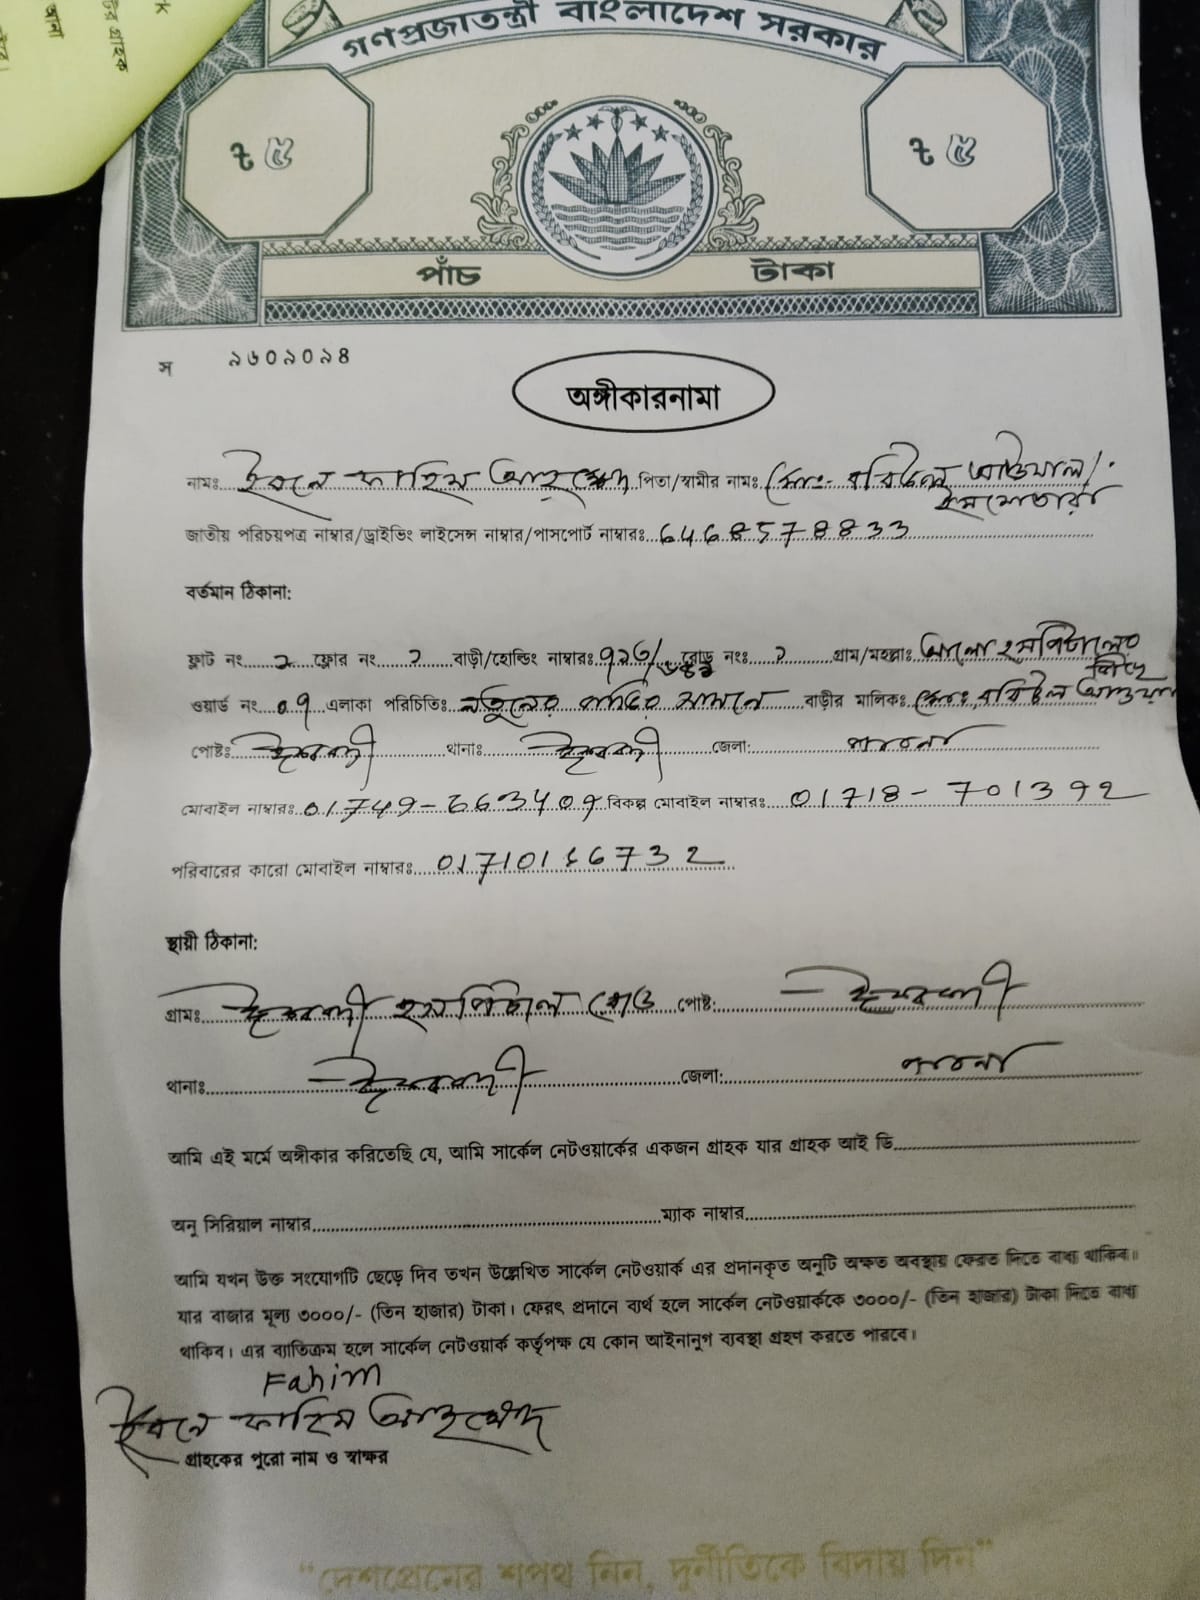 গণপ্রজাতন্ত্রী বাংলাদেশ সরকার
৳ ৫ ৳ ৫
পাঁচ টাকা
স ৯৬০৯০৯৪
অঙ্গীকারনামা
নামঃ ইবনে ফাহিম আহমেদ পিতা/স্বামীর নামঃ মোঃ- রবিউল আউয়াল
জাতীয় পরিচয়পত্র নাম্বার/ড্রাইভিং লাইসেন্স নাম্বার/পাসপোর্ট নাম্বারঃ 6468578833
বর্তমান ঠিকানা:
ফ্লাট নং ২ ফ্লোর নং ২ বাড়ী/হোল্ডিং নাম্বারঃ রোড নংঃ ২ গ্রাম/মহল্লাঃ আলো হসপিটালের পিছে
ওয়ার্ড নং ০৭ এলাকা পরিচিতিঃ সামনে বাড়ীর মালিকঃ মোঃ রবিউল আওয়াল
পোষ্টঃ ঈশ্বরদী থানাঃ ঈশ্বরদী জেলা: পাবনা
মোবাইল নাম্বারঃ বিকল্প মোবাইল নাম্বারঃ 01718-701392
পরিবারের কারো মোবাইল নাম্বারঃ
স্থায়ী ঠিকানা:
গ্রামঃ ঈশ্বরদী হসপিটাল রোড পোষ্ট: ঈশ্বরদী
থানাঃ ঈশ্বরদী জেলা: পাবনা
আমি এই মর্মে অঙ্গীকার করিতেছি যে, আমি সার্কেল নেটওয়ার্কের একজন গ্রাহক যার গ্রাহক আই ডি
অনু সিরিয়াল নাম্বার ম্যাক নাম্বার
আমি যখন উক্ত সংযোগটি ছেড়ে দিব তখন উল্লেখিত সার্কেল নেটওয়ার্ক এর প্রদানকৃত অনুটি অক্ষত অবস্থায় ফেরত দিতে বাধ্য থাকিব।
যার বাজার মূল্য ৩০০০/- (তিন হাজার) টাকা। ফেরৎ প্রদানে ব্যর্থ হলে সার্কেল নেটওয়ার্ককে ৩০০০/- (তিন হাজার) টাকা দিতে বাধ্য
থাকিব। এর ব্যাতিক্রম হলে সার্কেল নেটওয়ার্ক কর্তৃপক্ষ যে কোন আইনানুগ ব্যবস্থা গ্রহণ করতে পারবে।
Fahim
ইবনে ফাহিম আহমেদ
গ্রাহকের পুরো নাম ও স্বাক্ষর
"দেশপ্রেমের শপথ নিন, দুর্নীতিকে বিদায় দিন"